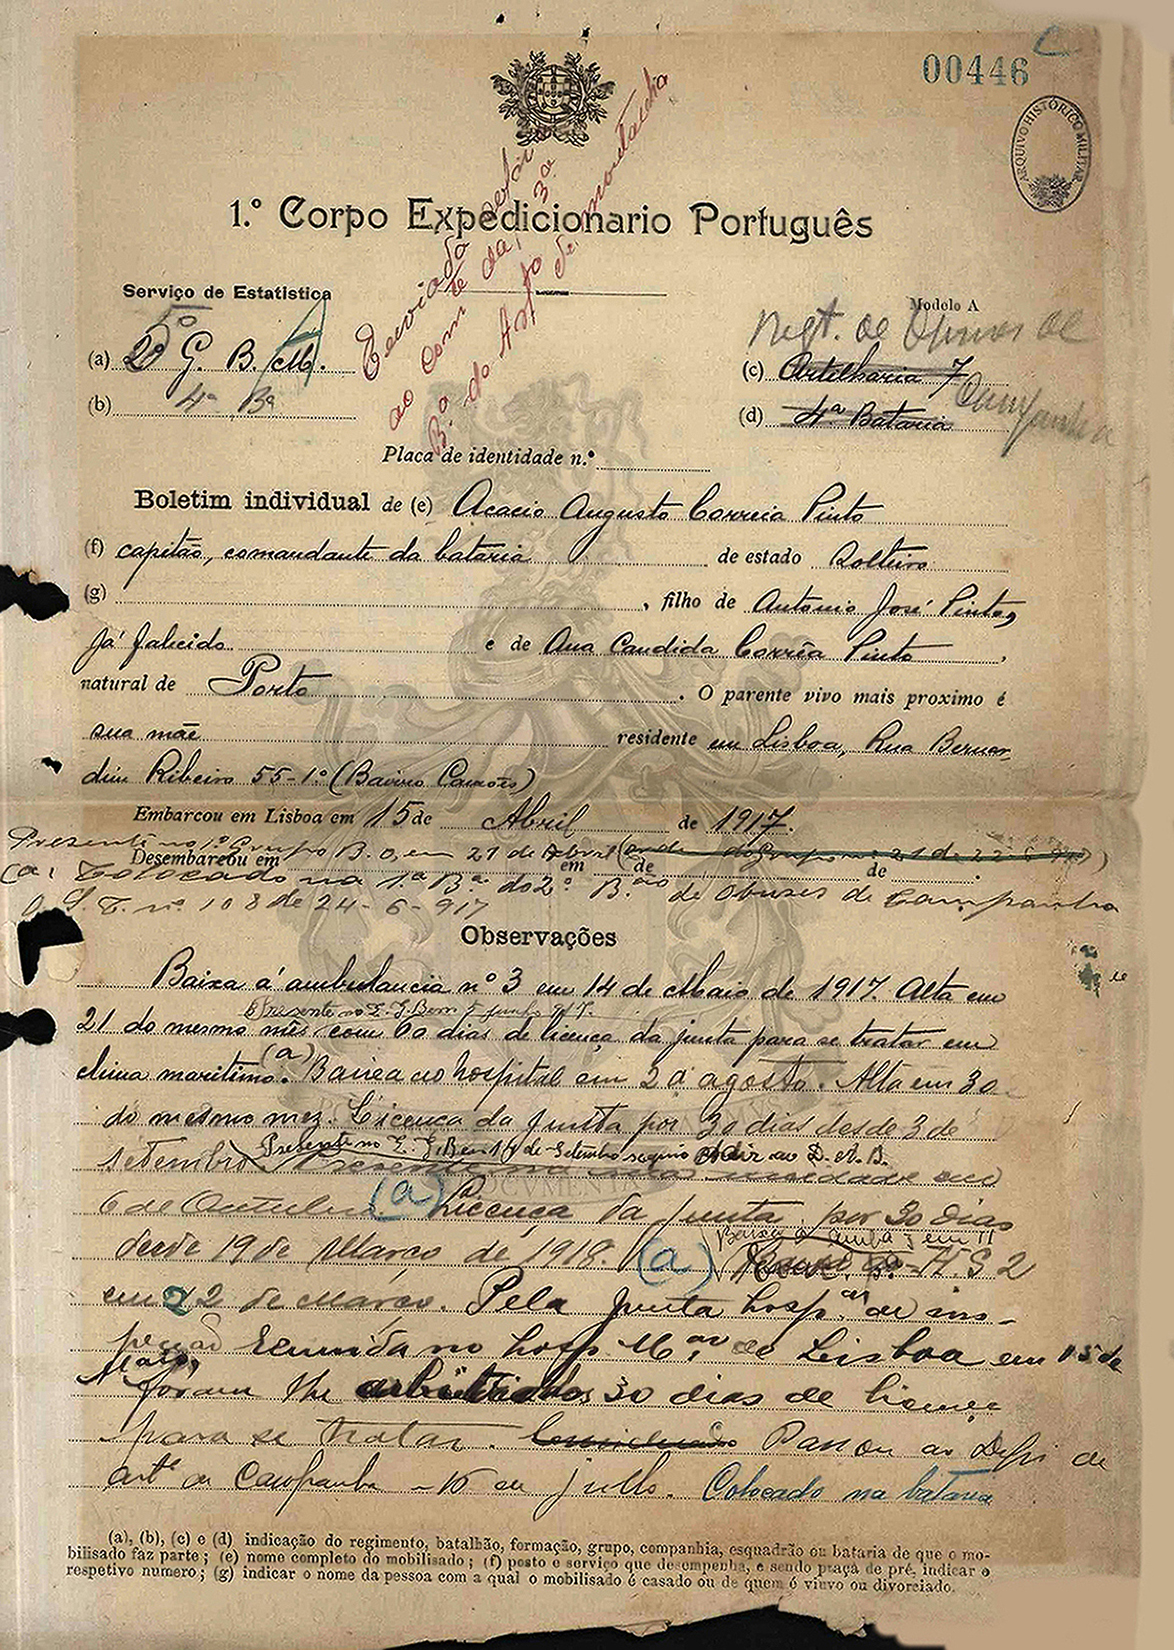 00446
ARQUIVO HISTÓRICO MILITAR
1.º Corpo Expedicionario Português
Enviado
ao Com.te da 3ª
B.ª do Art.
de montanha
Serviço de Estatistica
Modelo A
Regt. de Obuses de
Campanha
(a) 2º G. B. M.
5º
(c) Artelharia 7
(b) 4ª Bª
(d) 4ª Bataria
Placa de identidade n.º
Boletim individual de (e) Acacio Augusto Correia Pinto
(f) capitão, comandante da bataria de estado Solteiro
(g) , filho de Antonio José Pinto,
já falecido e de Ana Candida Corrêa Pinto ,
natural de Porto . O parente vivo mais proximo é
sua mãe residente em Lisboa, Rua Bernar
dim Ribeiro 55-1º (Bairro Camões)
Embarcou em Lisboa em 15 de Abril de 1917.
Presente no 1º Grupo B. O, em 21 de Abril
Desembarcou em em de de .
(a) Colocado na 1.ª B.ª do 2º B.ão de Obuses de Campanha
O. S. E. nº 108 de 24-6-917
Observações
Baixa á ambulancia nº 3 em 14 de Maio de 1917. Alta em
Presente no junho 917.
21 do mesmo mês com 60 dias de licença da junta para se tratar em
clima maritimo. (a) Baixa ao hospital em 2 agosto. Alta em 30
do mesmo mez. Licença da Junta por 30 dias desde 3 de
Presente no de Setembro seguiu ao D. A. B.
setembro. Presente na sua unidade em
6 de Outubro. (a) Licença da junta por 30 dias
Baixa á ambª 3 em 11
desde 19 de Março de 1918. (a) H. S 2
em 22 de Março. Pela junta hosp.ar de ins-
peção reunida no hosp. M.ar de Lisboa em 15 de
Maio, foram lhe arbitrados 30 dias de licença
para se tratar. Passou ao Depº de
artª de Campanha - 16 de julho. Colocado na bataria
(a), (b), (c) e (d) indicação do regimento, batalhão, formação, grupo, companhia, esquadrão ou bataria de que o mo-
bilisado faz parte; (e) nome completo do mobilisado; (f) posto e serviço que desempenha, e sendo praça de pré, indicar o
respetivo numero; (g) indicar o nome da pessoa com a qual o mobilisado é casado ou de quem é viuvo ou divorciado.